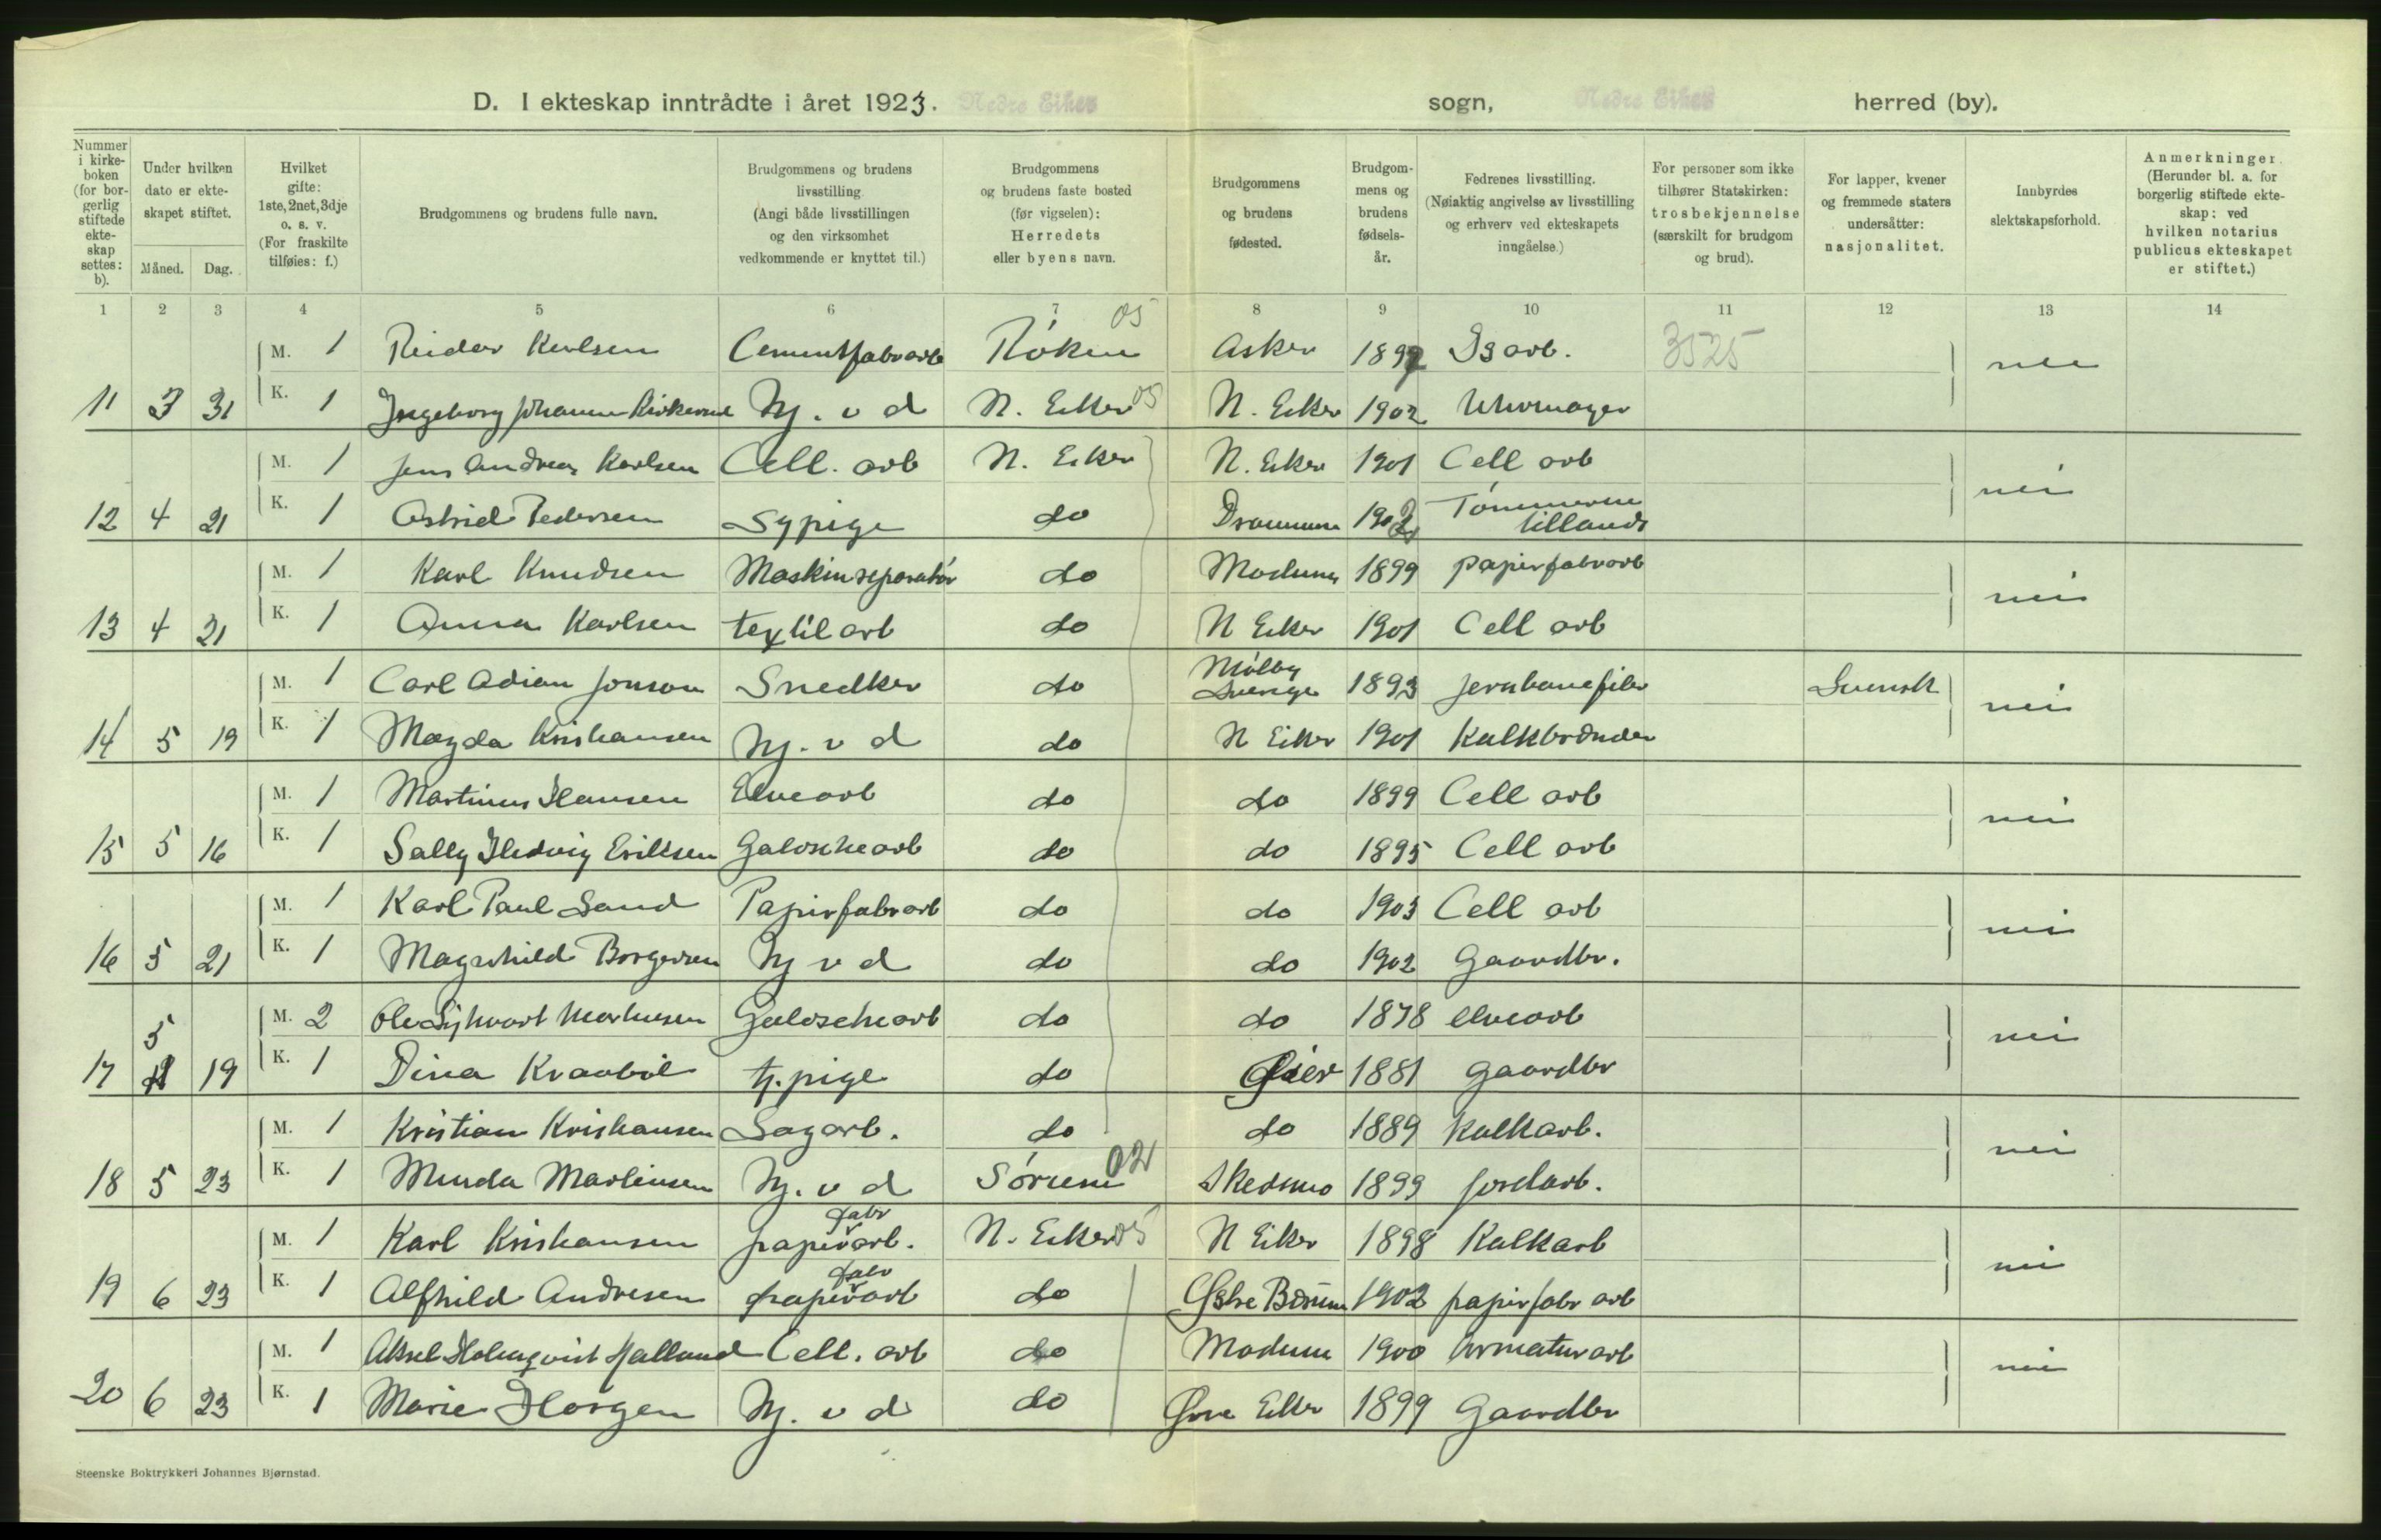 D. I ekteskap inntrådte i året 1923. Nedre Eiker sogn, Nedre Eiker herred (by).
Nummer i kirkeboken (for borgerlig stiftede ekteskap settes: b).
Under hvilken dato er ekteskapet stiftet.
Måned. Dag.
Hvilket gifte: 1ste, 2net, 3dje o. s. v. (For fraskilte tilføies: f.)
Brudgommens og brudens fulle navn.
Brudgommens og brudens livsstilling. (Angi både livsstillingen og den virksomhet vedkommende er knyttet til.)
Brudgommens og brudens faste bosted (før vigselen): Herredets eller byens navn.
Brudgommens og brudens fødested.
Brudgommens og brudens fødselsår.
Fedrenes livsstilling. (Nøiaktig angivelse av livsstilling og erhverv ved ekteskapets inngåelse.)
For personer som ikke tilhører Statskirken: trosbekjennelse (særskilt for brudgom og brud).
For lapper, kvener og fremmede staters undersåtter: nasjonalitet.
Innbyrdes slektskapsforhold.
Anmerkninger. (Herunder bl. a. for borgerlig stiftede ekteskap: ved hvilken notarius publicus ekteskapet er stiftet.)
1 2 3 4 5 6 7 8 9 10 11 12 13 14
M. 1 Reidar Karlsen Cementfabrarb Røken 05 Asker 1897 Isarb. 3525 nei
11 3 31 K. 1 Ingeborg Johanne Kirkerud hj. v d N. Eiker 05 N. Eiker 1902 Uhrmager
M. 1 Jens Andreas Karlsen Cell. arb N. Eiker N. Eiker 1901 Cell arb nei
12 4 21 K. 1 Astrid Pedersen Sypige do Drammen 1902 Tømmerm tillands
M. 1 Karl Knudsen Maskinreparatør do Modum 1899 papirfabrarb nei
13 4 21 K. 1 Anna Karlsen textil arb do N Eiker 1901 Cell arb
M. 1 Carl Adian Jonson Snedker do Mölby Sverige 1893 jernbanefiler Svensk nei
14 5 19 K. 1 Magda Kristiansen hj. v d do N Eiker 1901 Kalkbrænder
M. 1 Martinus Hansen Elvearb do do 1899 Cell arb nei
15 5 16 K. 1 Sally Hedvig Eriksen Galoschearb do do 1895 Cell arb
M. 1 Karl Paul Sand Papirfabrarb do do 1903 Cell arb nei
16 5 21 K. 1 Magnhild Borgersen hj v d do do 1902 Gaardbr.
M. 2 Ole Syhvart Markusen Galoschearb do do 1878 elvearb nei
17 5 19 K. 1 Dina Kraabøl tj. pige do Øier 1881 gaardbr
M. 1 Kristian Kristiansen Sagarb. do do 1889 Kalkarb. nei
18 5 23 K. 1 Minda Martinsen hj. v d Sørum 02 Skedsmo 1899 jordarb.
M. 1 Karl Kristiansen papirfabrarb. N. Eiker 05 N Eiker 1898 Kalkarb nei
19 6 23 K. 1 Alfhild Andresen papirfabrarb do Østre Bærum 1902 papirfabr arb
M. 1 Aksel Holmqvist Halland Cell. arb do Modum 1900 Armaturarb nei
20 6 23 K. 1 Marie Horgen hj. v d do Øvre Eiker 1899 Gaardbr
Steenske Boktrykkeri Johannes Bjørnstad.